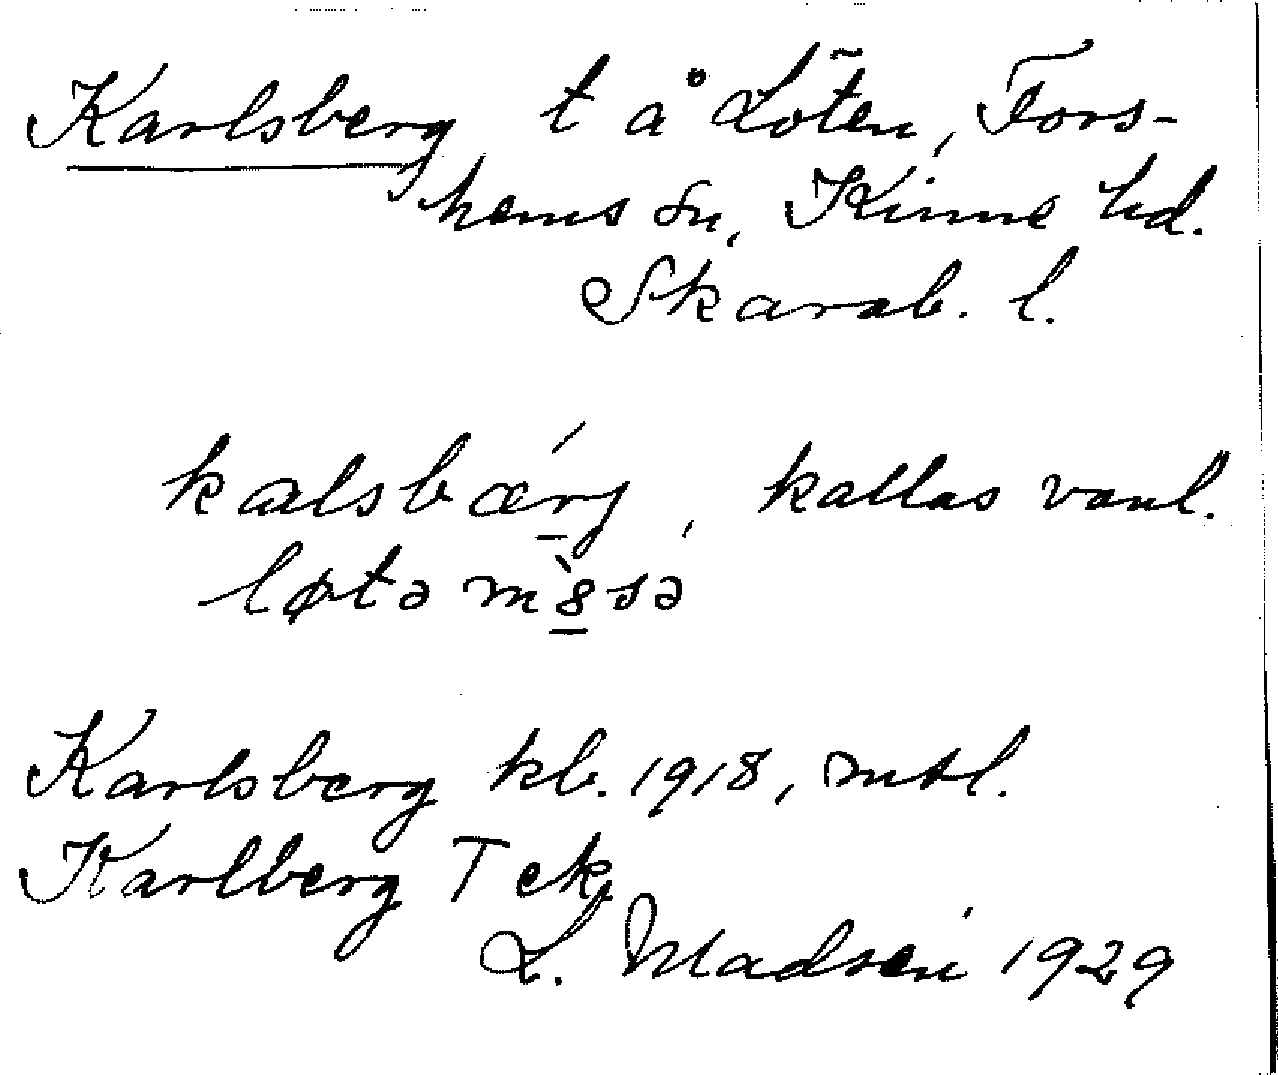 Karlsberg, t å Löten, Fors-
hems sn, Kinne hd.
Skarab. l.
kalsbærj, kallas vanl.
løtə m8̀sə
Karlsberg kb. 1918, mtl.
Karlberg T ek.
L. Madsén 1929